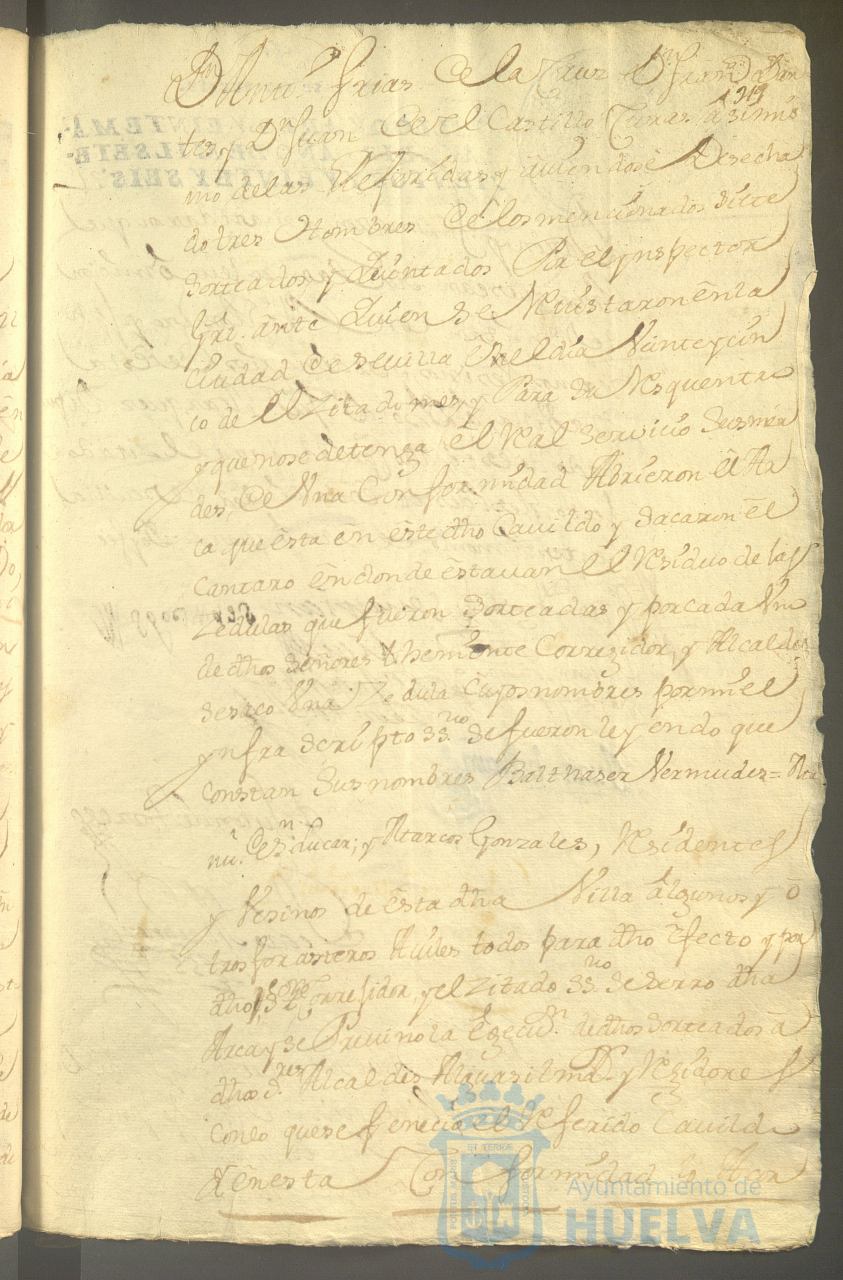 Dn Antto. frias de la Cruz Dn Fran
219
tes, y Dn Juan de el Castillo
mo de las Referidas y aviendose Desecha
do tres Hombres de los mencionados siete
Sorteados y Quintados Por el ynspector
Grl. ante Quien se Revistaron en la
Ciudad de Sevilla en el dia Veinte y cin
co de el Zitado mes, y Para su
y que no se detenga el Real Servicio Sus mrs
des, de Una Conformidad Abrieron el Ar
ca que esta en este dho Cavildo y Sacaron el
Cantaro en donde estavan el Residuo de las
Zedulas que fueron Sorteadas y por cada Un
de dhos Señores Theniente Correxidor, y Alcaldes
se saco Una Zedula Cuyos nombres por mi el
ynfra scripto ss.no se fueron leyendo que
Constan Sus nombres Balthaser Vermudes =
y Marcos Gonzales, Residentes
y Vesinos de esta dha Villa algunos y o
tros foraneros Aviles todos para dho efecto y por
dho Sr Correxidor, y el Zitado ss.no se Serro dha
Arca y se Previno la de dhos Sorteados a
dhos Sres Alcaldes Alguasil ma.or y Rexidores
Con lo que se fenecio el Referido Cavildo
y en esta Conformidad la
Ayuntamiento de
HUELVA